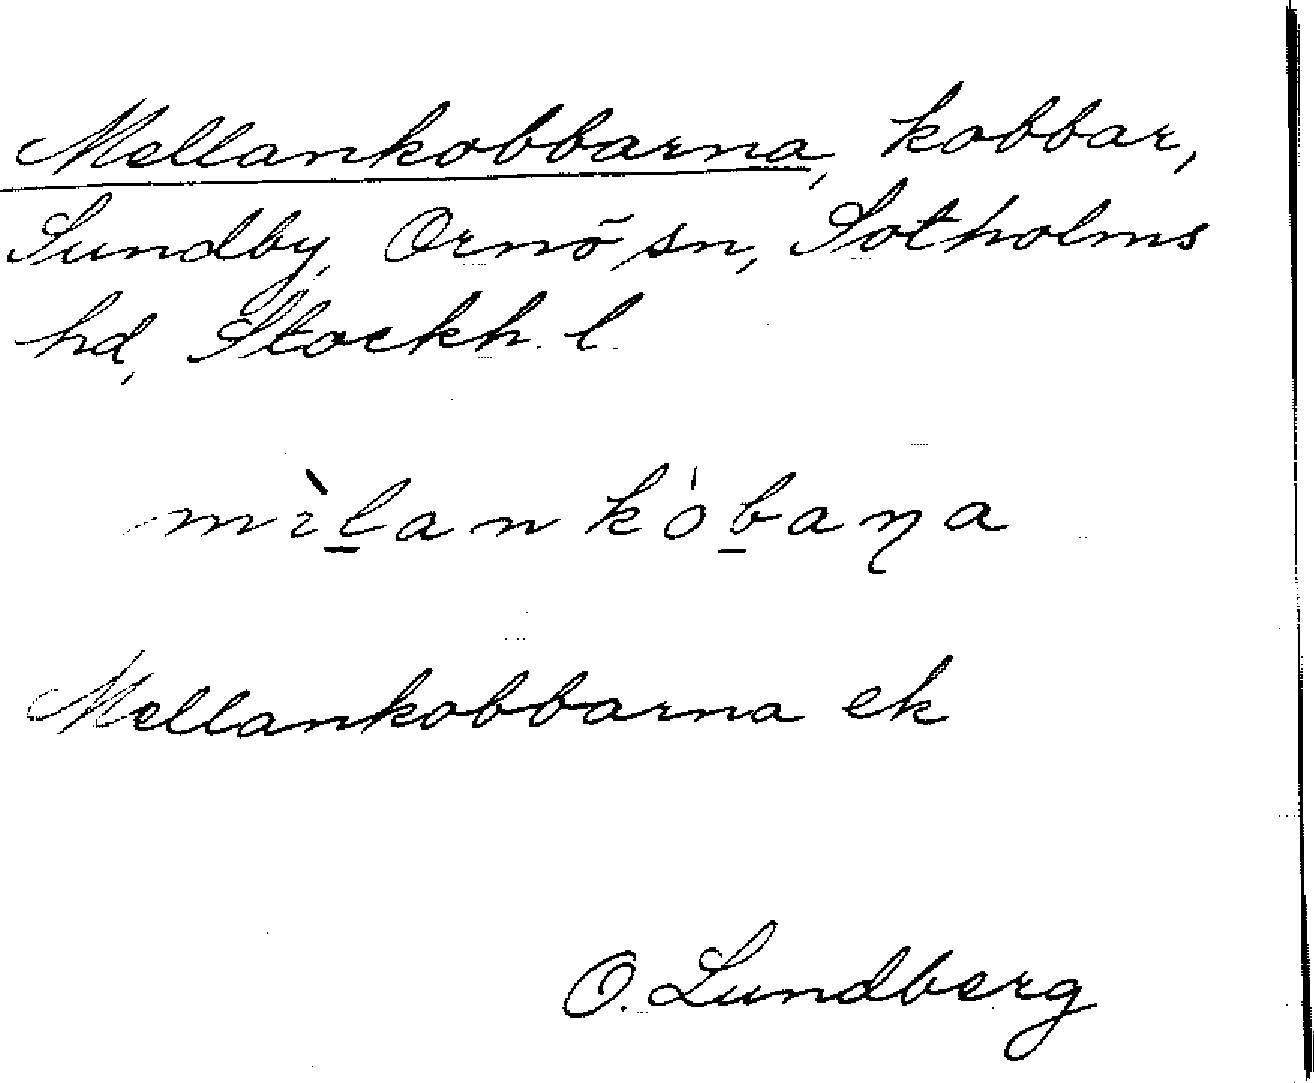 Mellankobbarna, kobbar,
Sundby, Ornö sn, Sotholms
hd, Stockh. l.
mìl̲ankób̲aɳa
Mellankobbarna ek
O. Lundberg